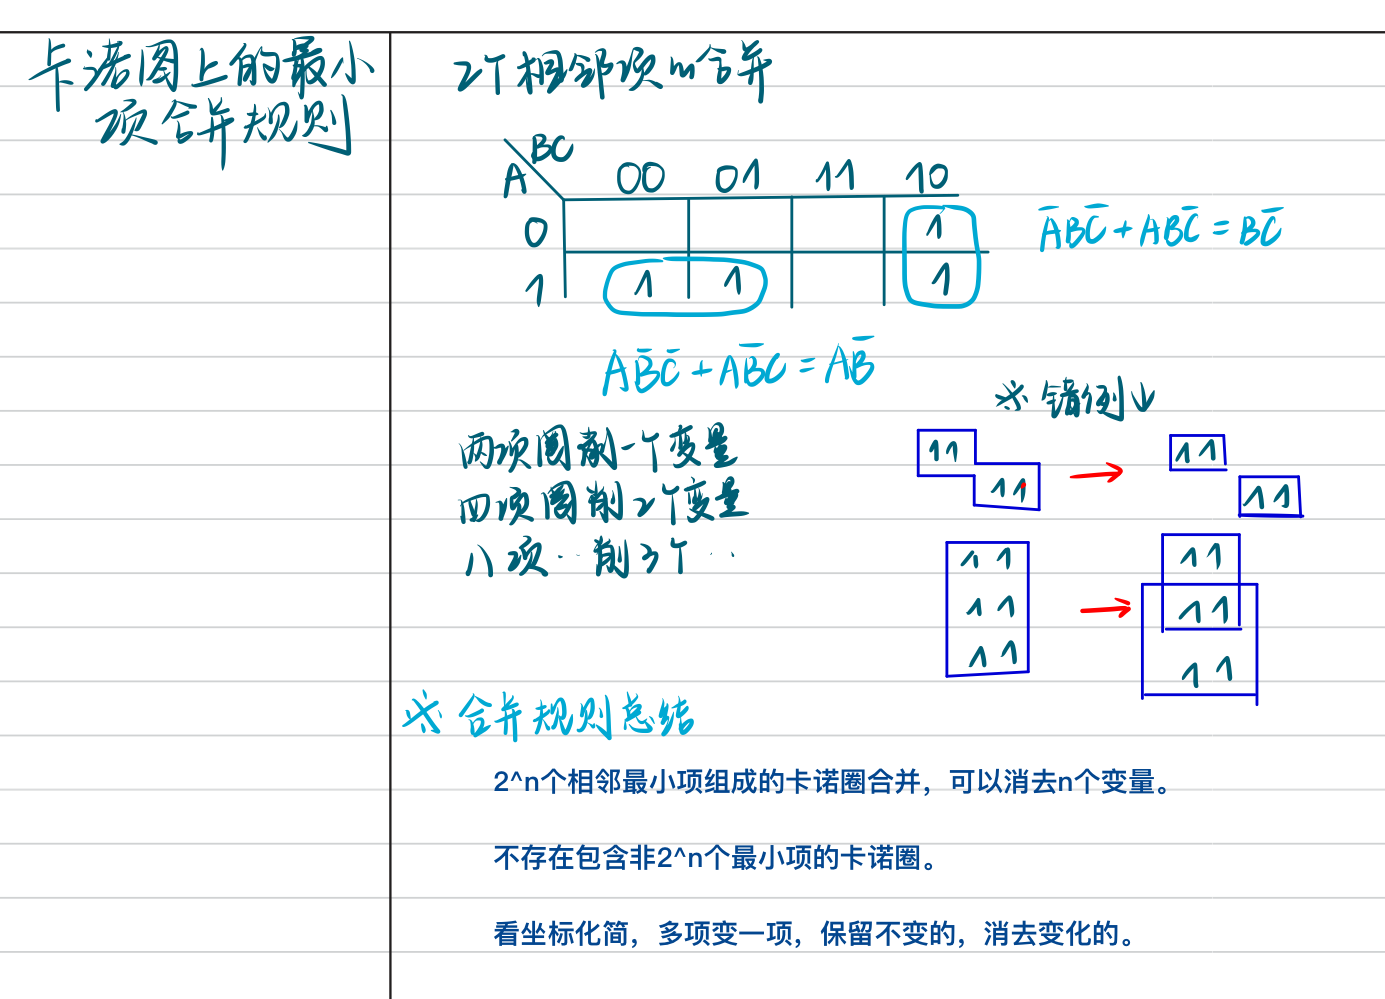 卡诺图上的最小
项合并规则
2个相邻项的合并
BC
A
00 01 11 10
0 1
1 1 1 1
A̅BC̅+ABC̅=BC̅
AB̅C̅+AB̅C=AB̅
※错例↓
两项圈削一个变量
四项圈削2个变量
八项··削3个··
11 → 11
11 11
11 → 11
11 11
11 11
※合并规则总结
2^n个相邻最小项组成的卡诺圈合并，可以消去n个变量。
不存在包含非2^n个最小项的卡诺圈。
看坐标化简，多项变一项，保留不变的，消去变化的。